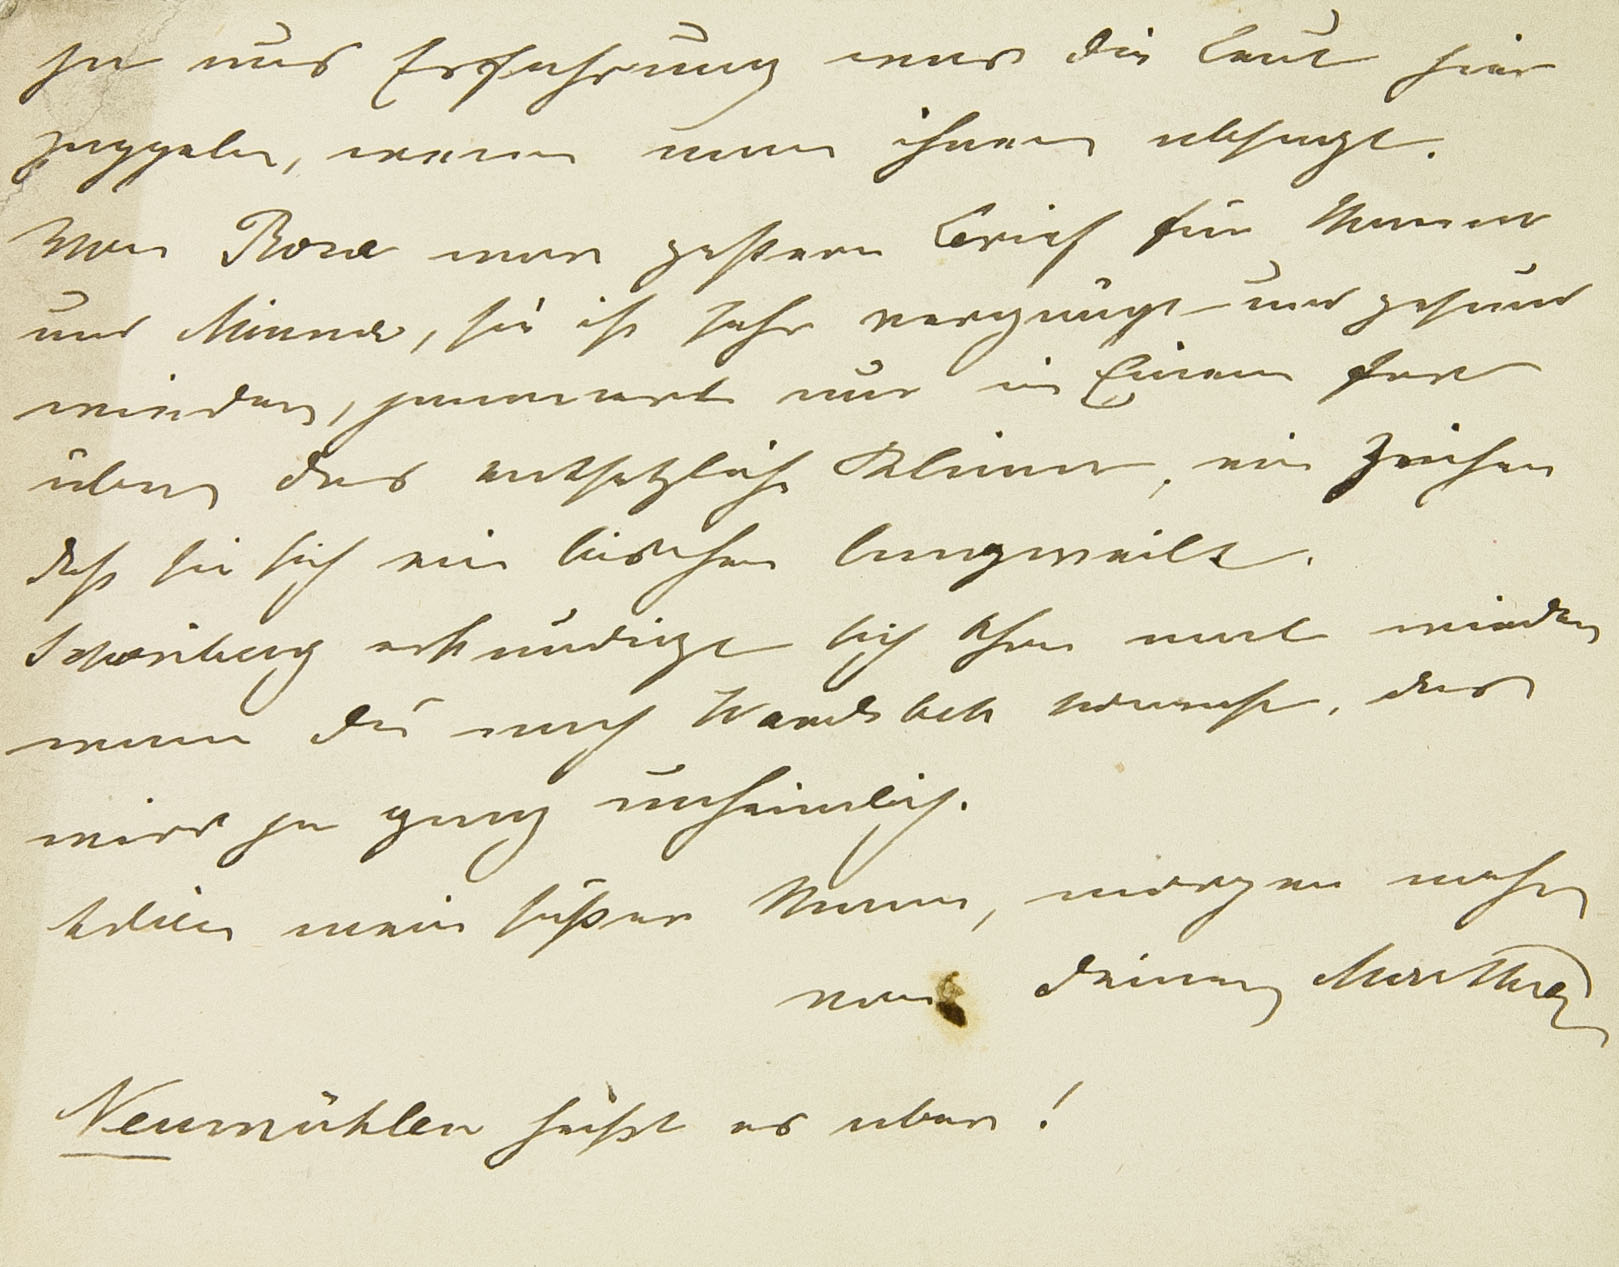 ja aus Erfahrung was die Leut hier
zappeln, wenn man ihnen absagt.
Von Rosa war gestern Brief für Mama
und Minna, sie ist sehr vergnügt und gesund
wieder, jammert nur in Einem fort
über das entsetzliche Klima, ein Zeichen
daß sie sich ein bischen langweilt.
Schönberg erkundigt sich schon wieder
wann du nach Wandsbek kommst, das
wird ja ganz unheimlich.
Adieu mein süßer Mann, morgen mehr
von deiner Martha
Neumühlen heißt es aber!